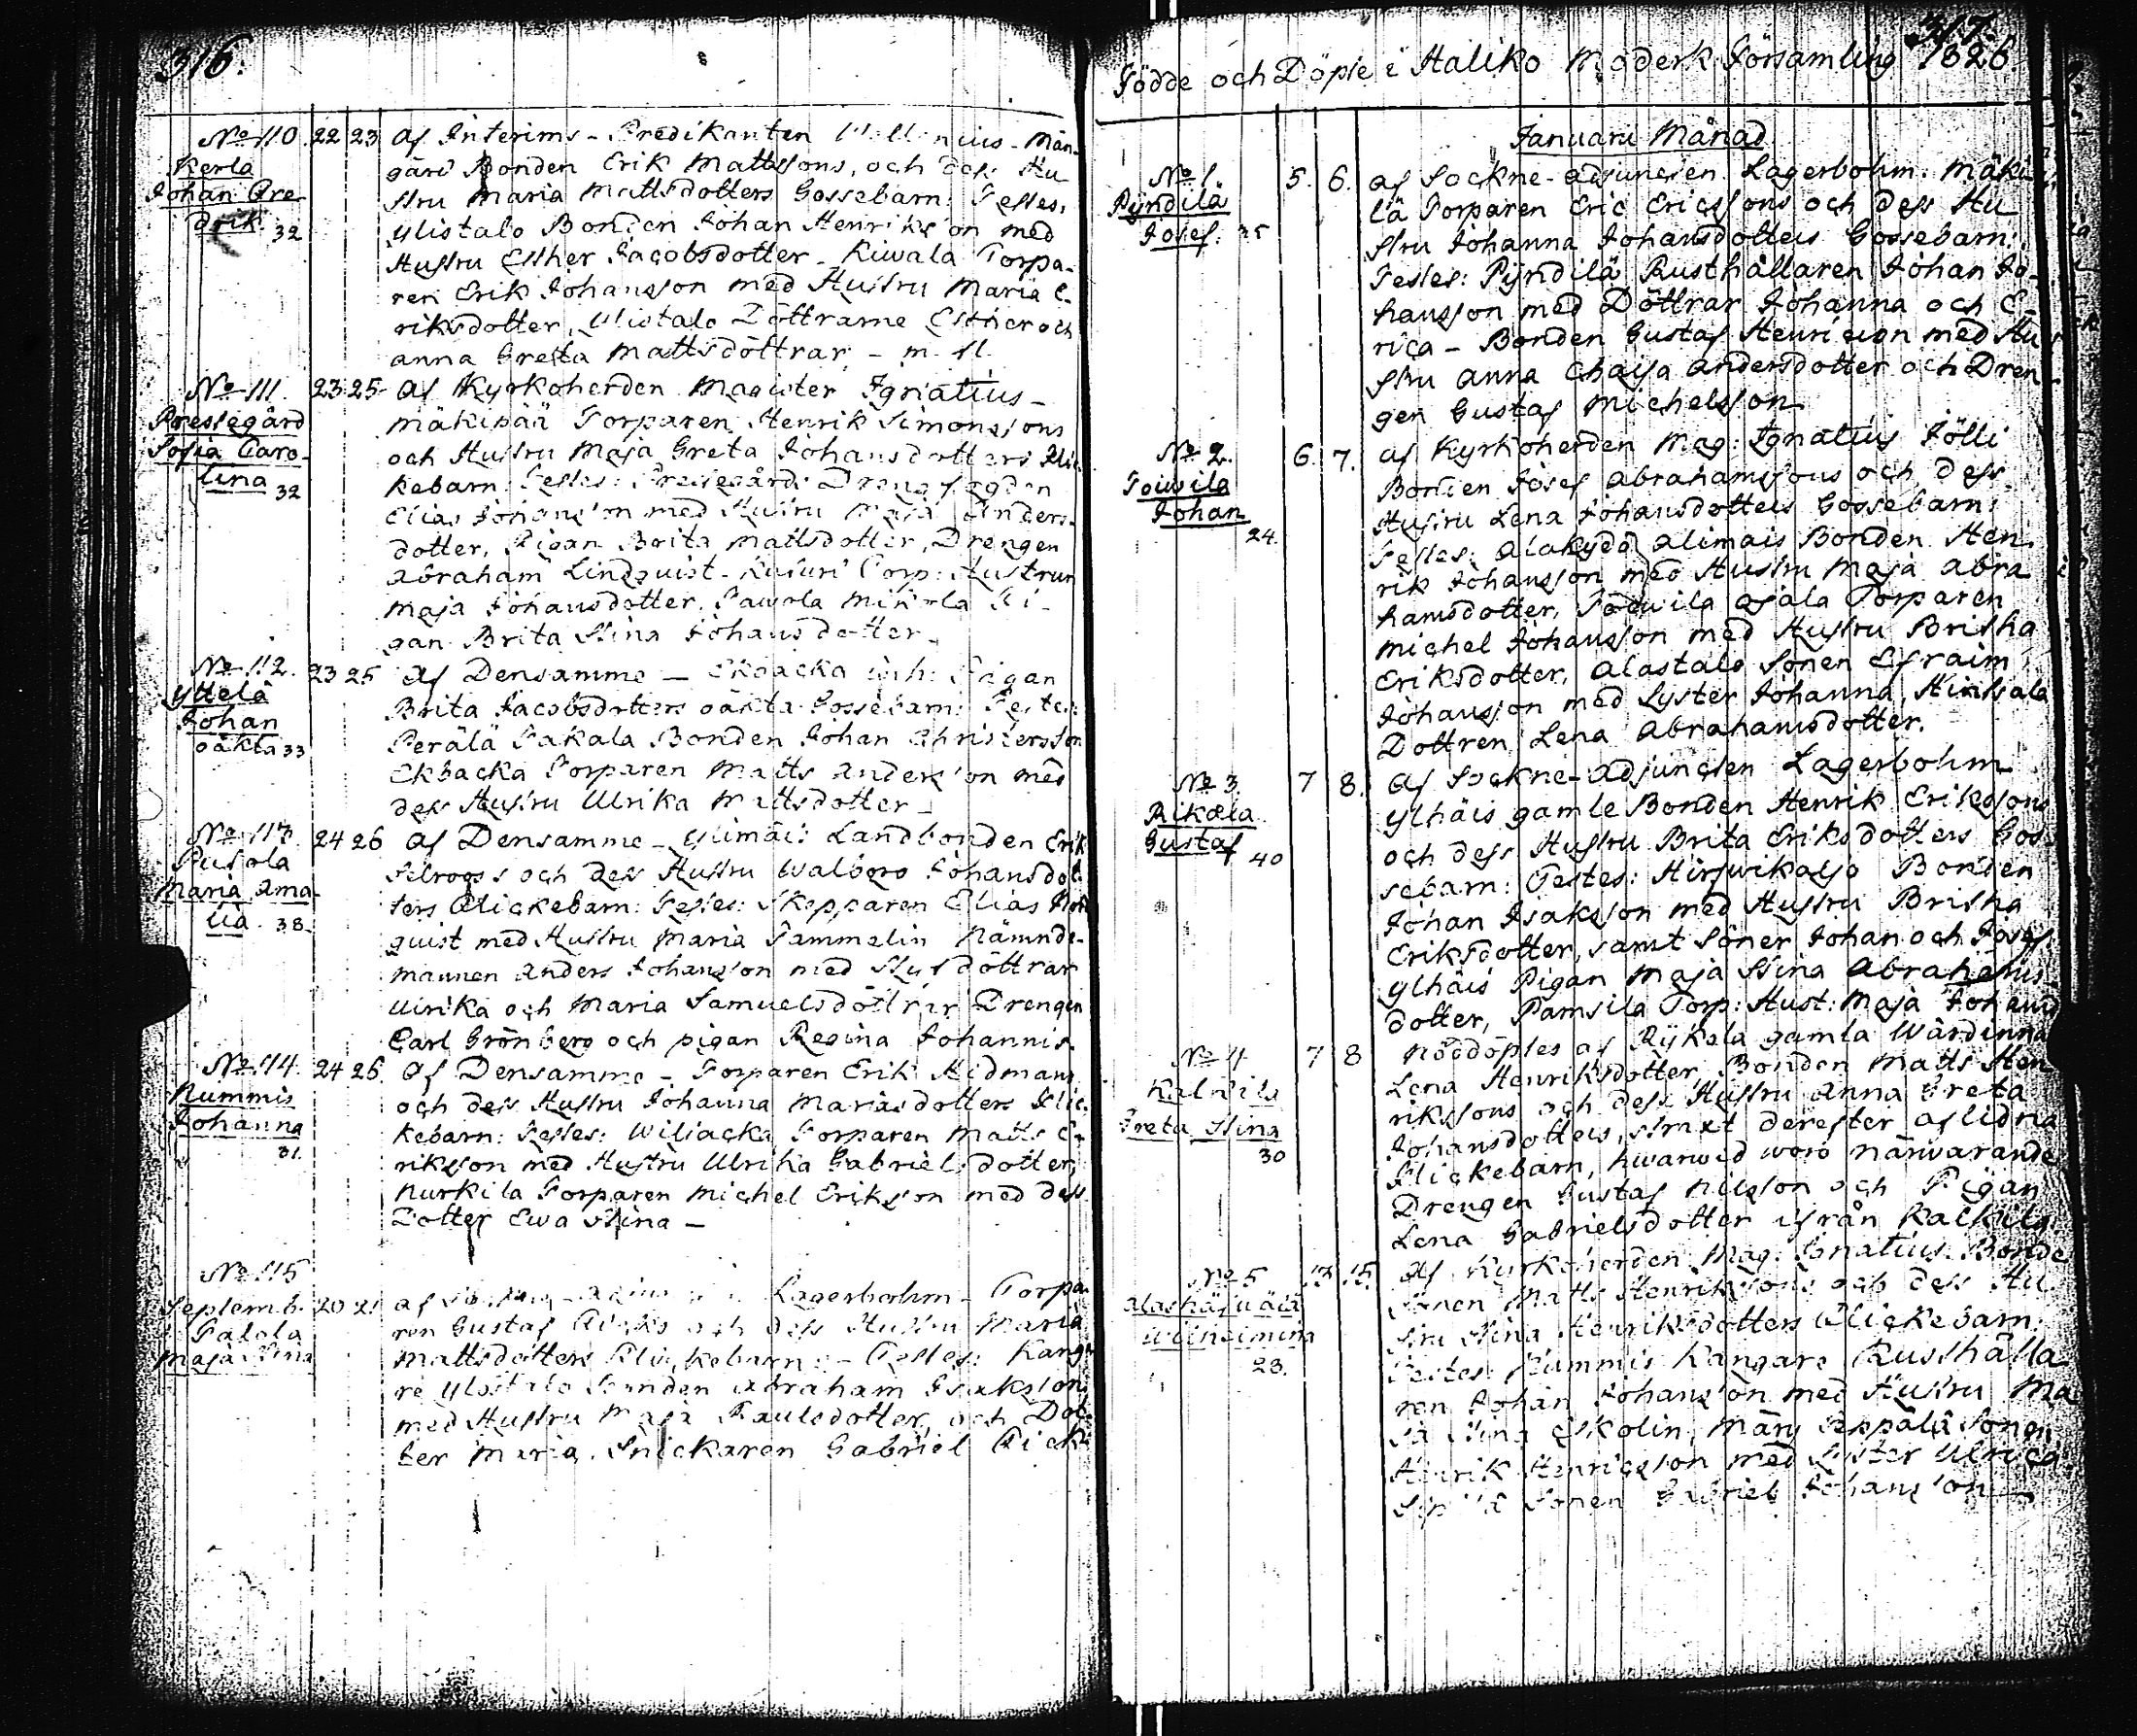 316.
No 110. 22 23 af Interims-Predikanten Män-
Kerla gård Bonden Erik Mattssons, och dess Hu
Johan Fre stru Maria Mattsdotters Gossebarn: Testes:
drik. 32 ylistalo Bonden Johan Henriksson med
Hustru Esther Jacobsdotter - Kiwala Torpa-
ren Erik Johansson med Hustru Maria E-
riksdotter, ylistalo Döttrarne Esther och
anna Greta Mattsdöttrar - m. fl.
No 111. 23 25 af Kyrkoherden Magister Ignatius -
Prestegård mäkipää Torparen Henrik Simonssons
Sofia Caro- och Hustru Maja Greta Johansdotters Flic-
lina 32 kebarn: Testes: Prestegårds Dreng
Elias Johansson med Hustru Maja Anders-
dotter, Pigan Brita Mattsdotter, Drengen
Abraham Lindquist - Torp: Hustrun
Maja Johansdotter, Pi-
gan Brita Stina Johansdotter -
No 112. 23 25 af Densamme - Ekbacka inh: Pigan
Yttelä Brita Jacobsdotters oäkta Gossebarn: Testes:
Johan Perälä Pakala Bonden Johan Christersson
oäkta 33 Ekbacka Torparen Matts Andersson med
dess Hustru Ulrika Mattsdotter -
No 113. 24 26 af Densamme - ylimäis Landbonden Erik
Pusola Selroos och dess Hustru Walborg Johansdot-
Maria Ama- ters Flickebarn: Testes: Skepparen Elias
lia. 38. quist med Hustru Maria Sammelin Nämnde-
mannen Anders Johansson med döttrar
Ulrika och Maria Samuelsdöttrar Drengen
Carl Grönberg och pigan Regina Johannis-
No 114. 24 26. af Densamme - Torparen Erik Hidmans
Nummis och dess Hustru Johanna Mariasdotters Flic-
Johanna kebarn: Testes: Wiliacka Torparen Matts E-
31. riksson med Hustru Ulrika Gabrielsdotter,
Nurkila Torparen Michel Eriksson med dess
Dotter Ewa Stina -
No 115
Septemb. 20 21 af Lagerbohm - Torpa-
Palola ren Gustaf och dess Hustru Maria
Maja Stina Mattsdotters Flickebarn: - Testes: Kanga-
re ylistalo Bonden Abraham Isaksson
med Hustru Maja Paulsdotter, och Dot-
ter Maria. Snickaren Gabriel
317.
Födde och Döpte i Haliko Moderk Församling 1826
Januari Månad
No 1. 5. 6. af Sockne-adjuncten Lagerbohm: Mäki-
Pyndilä lä Torparen Eric Ericssons och dess Hu
Josef. 35 stru Johanna Johansdotters Gossebarn:
Testes: Pyndilä Rusthållaren Johan Jo-
hansson med Döttrar Johanna och E-
rica - Bonden Gustaf Henricson med Hu
stru Anna Chaisa Andersdotter och Dren-
gen Gustaf Michelsson
No 2. 6. 7. af Kyrkoherden Mag: Ignatius Jölli
Towila Bonden Josef Abrahamssons och dess
Johan Hustru Lena Johansdotters Gossebarn:
24. Testes: Alakydö Alimais Bonden Hen-
rik Johansson med Hustru Maja Abra
hamsdotter, Towila Torparen
Michel Johansson med Hustru Britha
Eriksdotter, Alastalo Sonen Efraim
Johansson med Syster Johanna, Hinksala
Dottren Lena Abrahamsdotter.
No 3. 7 8. af Sockne-Adjuncten Lagerbohm
Rikala ylhäis gamle Bonden Henrik Erikssons
Gustaf 40 och dess Hustru Brita Eriksdotters Gos-
sebarn: Testes: Hirswikaljo Bonden
Johan Isaksson med Hustru Britha
Eriksdotter, samt Söner Johan och Josef
ylhäis Pigan Maja Stina Abrahams
dotter, Pamsila Torp: Hust: Maja Johans
No 4 7 8 Nöddöptes af Rykala gamla Wärdinna
Lena Henriksdotter, Bonden Matts Hen
Greta Stina rikssons och dess Hustru Anna Greta
30 Johansdotters, straxt derefter aflidna
Flickebarn, hwarwid woro närwarande
Drengen Gustaf Nilsson och Pigan
Lena Gabrielsdotter ifrån Kalkila
No 5 13. 15. af Kyrkoherden Mag: Ignatius: Bonde
Sonen Matts Henrikssons och dess Hu
Wilhelmina stru Stina Henriksdotters Flickebarn:
23. Testes: Nummis Kangare Rusthålla
ren Johan Johansson med Hustru Ma
ja Stina Ekolin, Märy Seppälä Sonen
Henrik Henricsson med Syster Ulrica
Sonen Gabriel Johansson